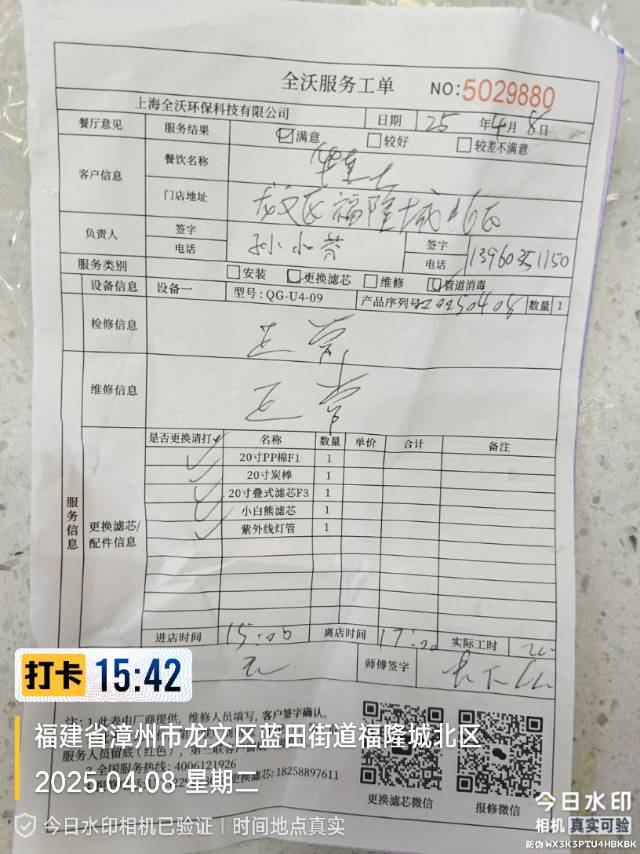 全沃服务工单 NO:5029880
上海全沃环保科技有限公司 日期 25 年 4 月 8 日
餐厅意见 服务结果 满意 较好 较差不满意
客户信息 餐饮名称 华莱士
门店地址 龙文区福隆城北区
负责人 签字 孙小 签字
电话 电话 13960351150
服务类别 安装 更换滤芯 维修 管道消毒
设备信息 设备一 型号:QG-U4-09 产品序列号 20250408 数量 1
检修信息 正常
维修信息 正常
服务信息
更换滤芯/配件信息
是否更换请打✓ 名称 数量 单价 合计 备注
✓ 20寸PP棉F1 1
✓ 20寸炭棒 1
✓ 20寸叠式滤芯F3 1
✓ 小白熊滤芯 1
✓ 紫外线灯管 1
进店时间 15:00 离店时间 17:00 实际工时
师傅签字
注:1.此表由厂商提供,维修人员填写,客户签字确认。
服务人员留底(红色),第三联客户留
2.全国服务热线:4006121926
监督:18258897611
更换滤芯微信 报修微信
打卡 15:42
福建省漳州市龙文区蓝田街道福隆城北区
2025.04.08 星期二
今日水印相机已验证 | 时间地点真实
今日水印
相机 真实可验
防伪 WX3K3PTU4HBKBK